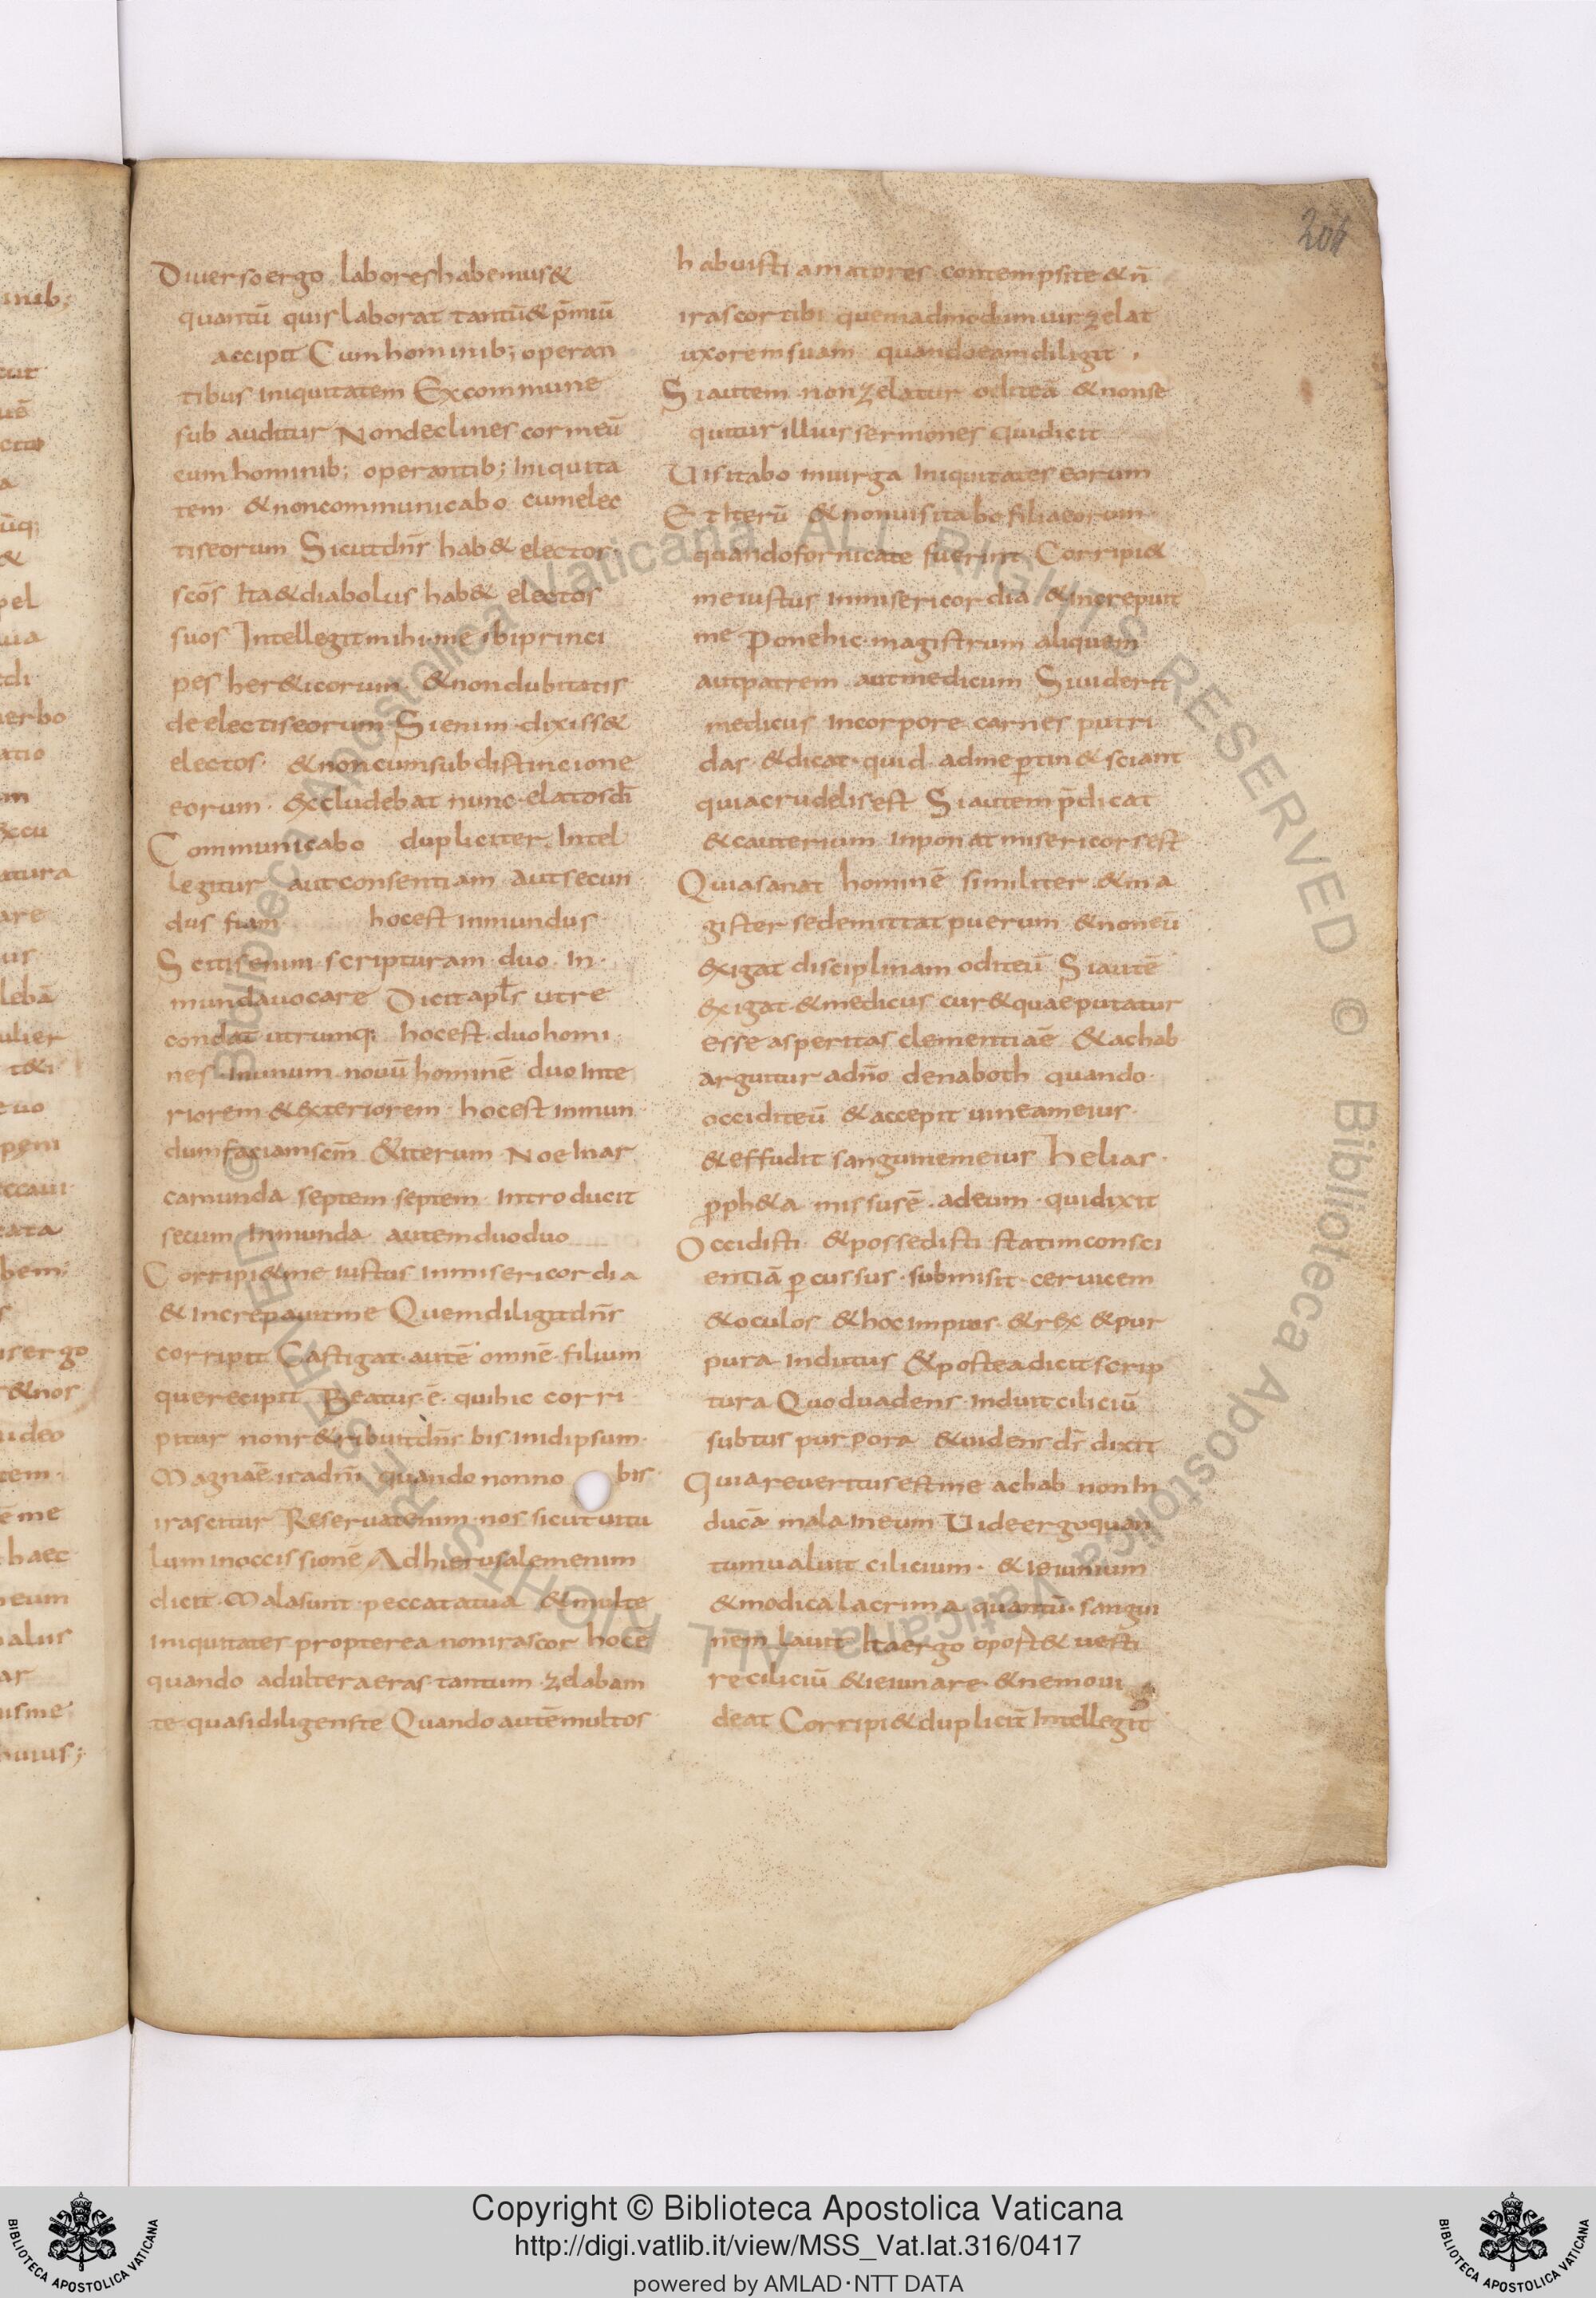 206
Diuerso ergo labores habemus &
quantū quis laborat tantū & p̄miū
accipit Cum hominib; operan
tibus iniquitatem Ex commune
sub auditur Non declines cor meū
cum hominib; operantib; iniquita
tem & non communicabo cum elec
tis eorum Sicut dn̄s hab& electos
scōs Ita & diabolus hab& electos
suos Intellegit mihi me ibi princi
pes her&icorum & non dubitatis
de electis eorum Si enim dixiss&
electos & non cum subdistincione
eorum excludebat nunc elatos di
Communicabo dupliciter Intel
legitur aut consentiam aut secun
dus fiam hoc est inmundus
Scitis enim scripturam duo in
munda uocare Dicit apl̄s ut re
condat utrumq; hoc est duo homi
nes in unum nouū hominē duo inte
riorem & exteriorem hoc est inmun
dum faciam sem̄ & iterum Noe in ar
ca munda septem septem introducit
secum Inmunda autem duo duo
Corripi& me iustus in misericordia
& increpauit me Quem diligit dn̄s
corripit Castigat autē omnē filium
que recipit Beatus ē qui hic corri
pitur non r&ribuit dn̄s bis in id ipsum
Magna ē ira dn̄i quando non no bis
irascitur Reseruat enim nos sicut uitu
lum in occissionē Ad hierusalem enim
dicit Mala sunt peccata tua & multe
iniquitates propterea non irascor hoc ē
quando adultera eras tantum zelabam
te quasi diligens te Quando autē multos
habuisti amatores contempsi te & n̄
irascor tibi quemadmodum uir zelat
uxorem suam quando eam diligit
Si autem non zelatur odit eā & non se
quitur illius sermones Quid icit
Uisitabo in uirga iniquitates eorum
Et Iterū & non uisitabo filias eorum
quando fornicate fuerint Corripi&
me iustus in misericordia & increpuit
me Pone hic magistrum aliquem
aut patrem aut medicum Si uiderit
medicus in corpore carnes putri
das & dicat quid ad me ꝑtin& sciant
quia crudelis est Si autem p̄dicat
& cauterium inponat misericors est
Quia sanat hominē similiter & ma
gister se demittat puerum & non eū
exigat disciplinam odit eū Si autē
exigat & medicus cur& quae putatur
esse asperitas clementia ē & achab
arguitur a dn̄o de naboth quando
occidit eū & accepit uineam eius
& effudit sanguinem eius Helias
ꝓph&a missus ē ad eum qui dixit
Occidisti & possedisti statim consci
entiā ꝑcussus submisit ceruicem
& oculos & hoc impius & rex & pur
pura indutus & postea dicit scrip
tura Quod uadens induit ciliciū
subtus purpora & uidens ds̄ dixit
Quia reueritus est me achab non in
ducā mala in eum Uide ergo quan
tum ualuit cilicium & ieiunium
& modica lacrima quantū sangui
nem lauit Ita ergo oport& uesti
re ciliciū & ieiunare & nemo ui
deat Corripi& duplicit̄ Intellegit̄
Copyright © Biblioteca Apostolica Vaticana
http://digi.vatlib.it/view/MSS_Vat.lat.316/0417
powered by AMLAD·NTT DATA
BIBLIOTECA APOSTOLICA VATICANA
BIBLIOTECA APOSTOLICA VATICANA